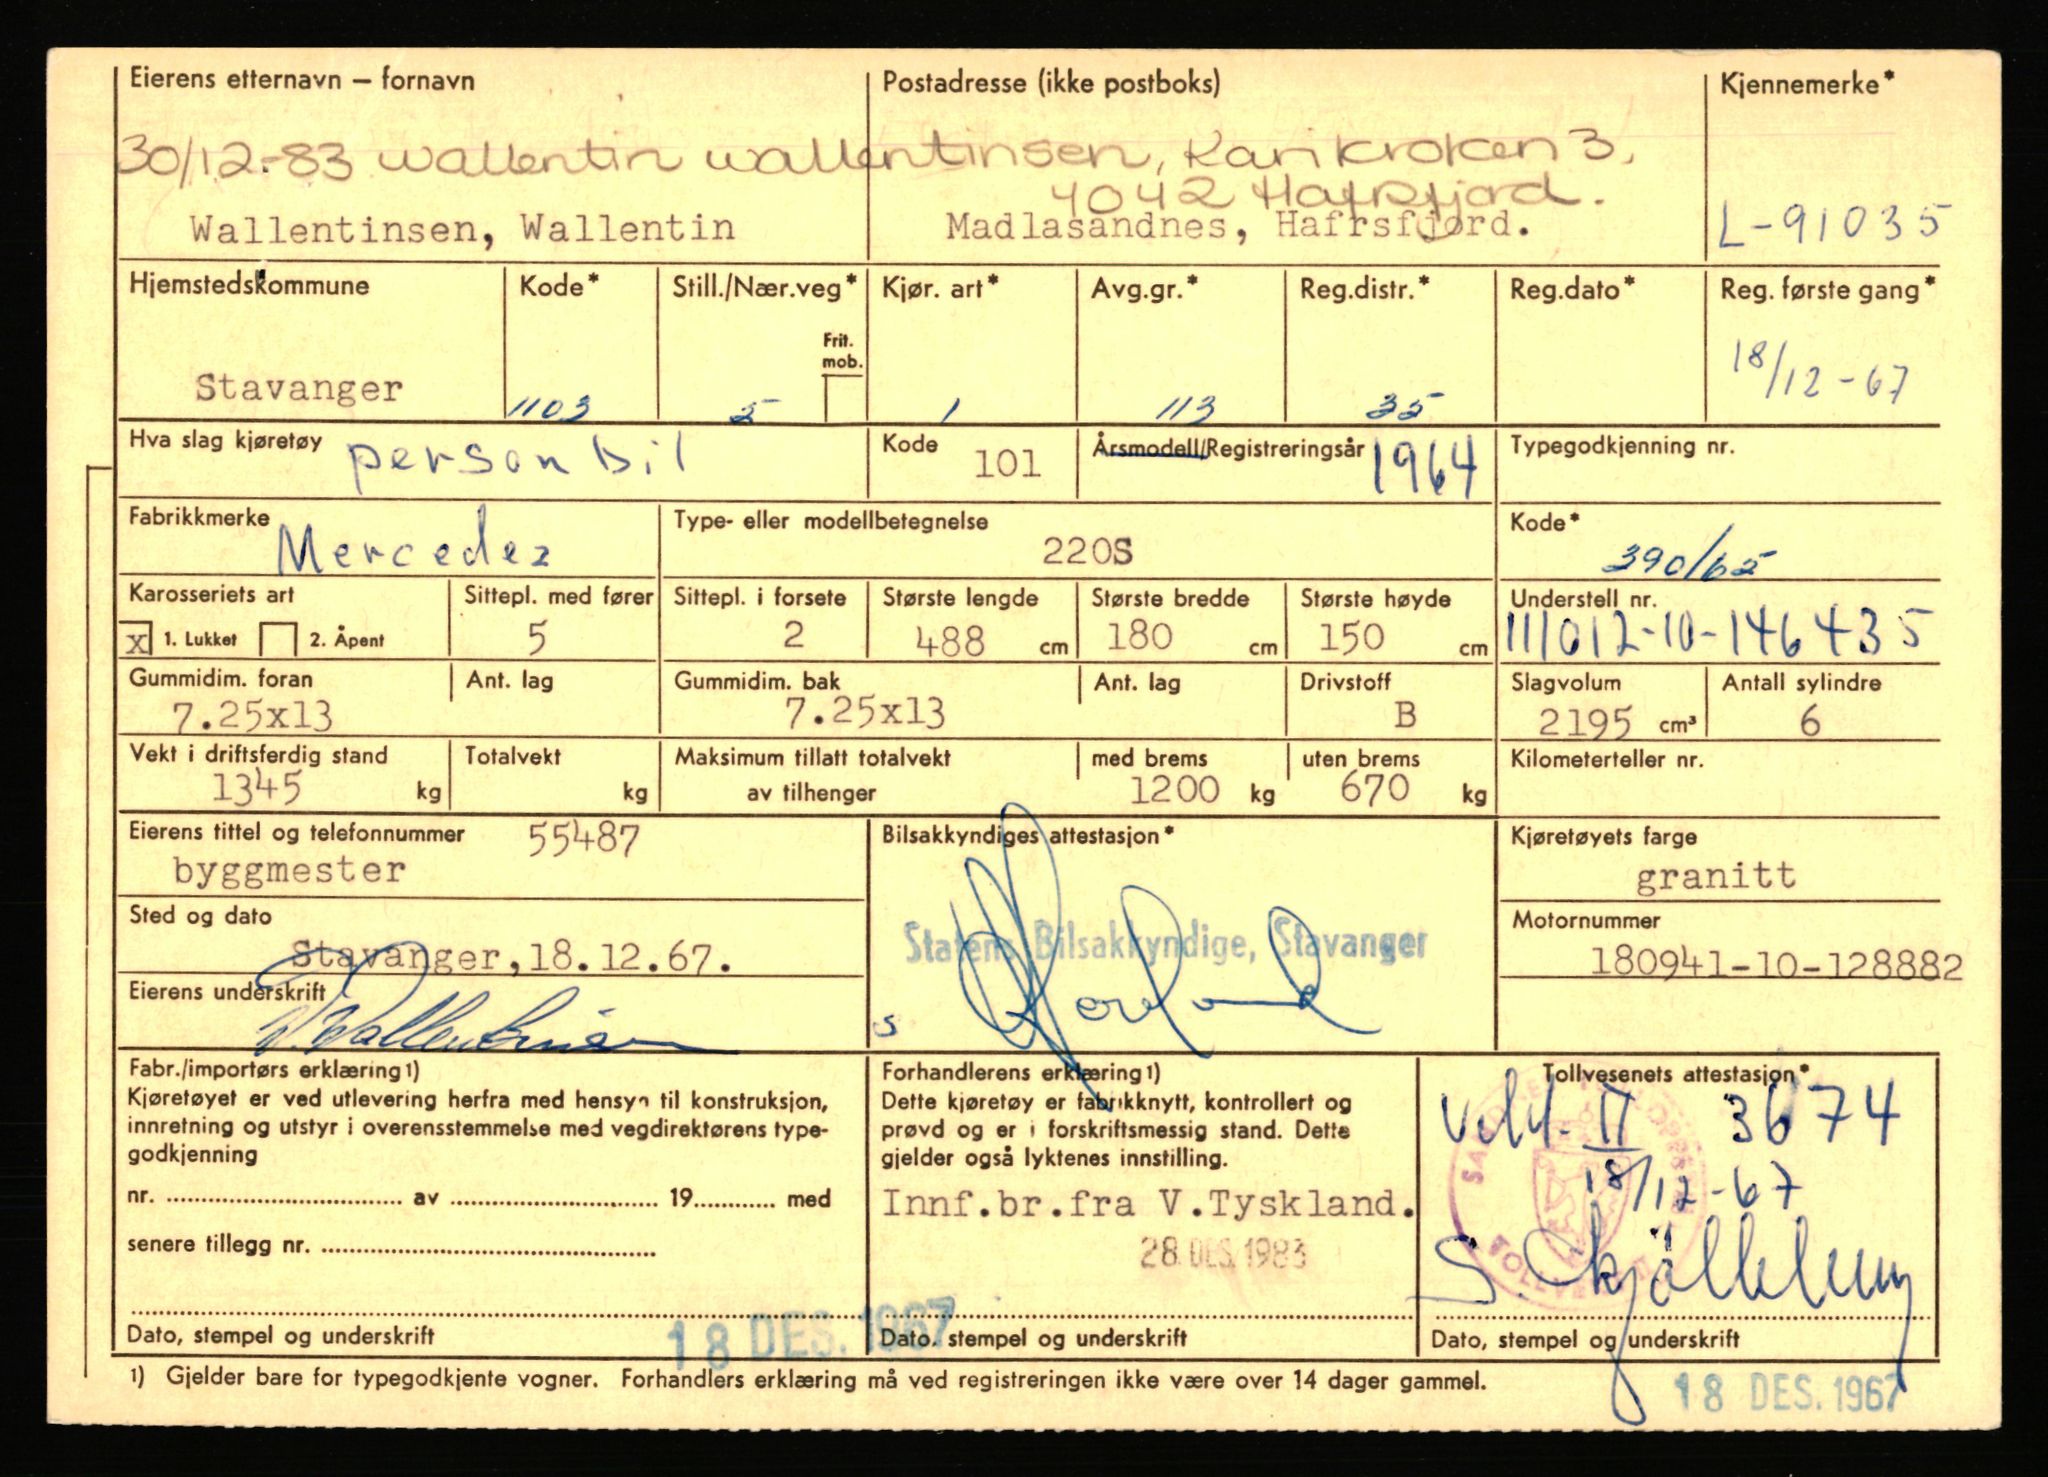 Eierens etternavn — fornavn Postadresse (ikke postboks) Kjennemerke*
30/12-83 Wallentin Wallentinsen, Karikroken 3,
4042 Hafrsfjord.
Wallentinsen, Wallentin Madlasandnes, Hafrsfjord. L-91035
Hjemstedskommune Kode* Still./Nær.veg* Kjør. art* Avg.gr.* Reg.distr.* Reg.dato* Reg. første gang*
Frit.
mob.
Stavanger 1103 5 1 113 35 18/12-67
Hva slag kjøretøy personbil Kode 101 Årsmodell/Registreringsår 1964 Typegodkjenning nr.
Fabrikkmerke Type- eller modellbetegnelse Kode*
Mercedez 220S 390/65
Karosseriets art Sittepl. med fører Sittepl. i forsete Største lengde Største bredde Største høyde Understell nr.
x 1. Lukket 2. Åpent 5 2 488 cm 180 cm 150 cm 111012-10-146435
Gummidim. foran Ant. lag Gummidim. bak Ant. lag Drivstoff Slagvolum Antall sylindre
7.25x13 7.25x13 B 2195 cm³ 6
Vekt i driftsferdig stand Totalvekt Maksimum tillatt totalvekt med brems uten brems Kilometerteller nr.
1345 kg kg av tilhenger 1200 kg 670 kg
Eierens tittel og telefonnummer 55487 Bilsakkyndiges attestasjon* Kjøretøyets farge
byggmester granitt
Sted og dato Motornummer
Statens Bilsakkyndige, Stavanger
Stavanger, 18.12.67. 180941-10-128882
Eierens underskrift
W. Wallentinsen s
Fabr./importørs erklæring 1) Forhandlerens erklæring 1) Tollvesenets attestasjon*
Kjøretøyet er ved utlevering herfra med hensyn til konstruksjon, Dette kjøretøy er fabrikknytt, kontrollert og 3674
innretning og utstyr i overensstemmelse med vegdirektørens type- prøvd og er i forskriftsmessig stand. Dette II
godkjenning gjelder også lyktenes innstilling. 18/12-67
nr. ........ av ........ 19........ med Innf.br.fra V.Tyskland.
senere tillegg nr. ........ 28. DES. 1983
18 DES. 1967
Dato, stempel og underskrift Dato. stempel og underskrift Dato, stempel og underskrift
1) Gjelder bare for typegodkjente vogner. Forhandlers erklæring må ved registreringen ikke være over 14 dager gammel.
18 DES. 1967